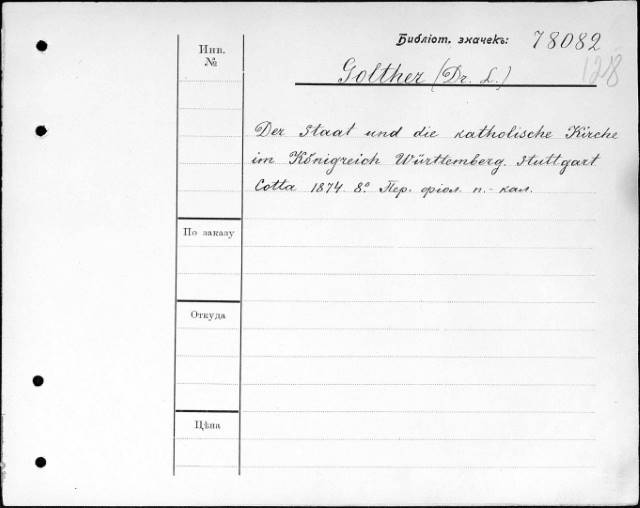 Инв.
№
Библіот. значекъ: 78082
128
Golther (Dr. L.)
Der Staat und die katholische Kirche
im Königreich Württemberg. Stuttgart
Cotta 1874. 8º. Пер. фіол. п.-кал.
По заказу
Откуда
Цѣна